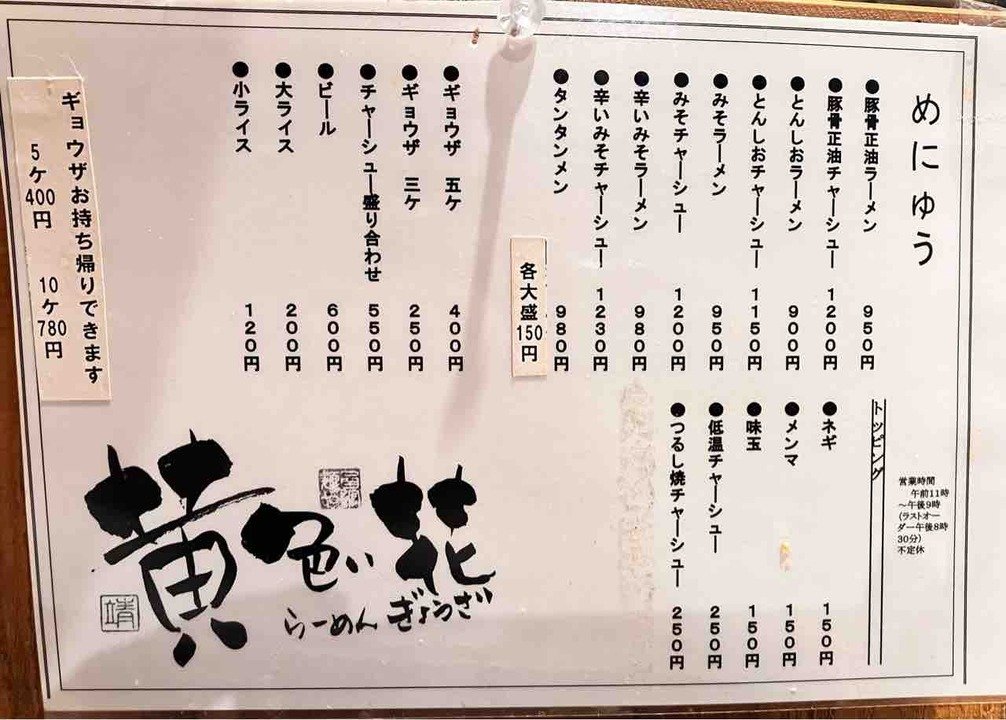 めにゅう
●豚骨正油ラーメン 950円
●豚骨正油チャーシュー 1200円
●とんしおラーメン 900円
●とんしおチャーシュー 1150円
●みそラーメン 950円
●みそチャーシュー 1200円
●辛いみそラーメン 980円
●辛いみそチャーシュー 1230円
●タンタンメン 980円
各大盛150円
営業時間
午前11時
～午後9時
(ラストオー
ダー午後8時
30分)
不定休
トッピング
●ネギ 150円
●メンマ 150円
●味玉 150円
●低温チャーシュー 250円
●つるし焼チャーシュー 250円
●ギョウザ 五ケ 400円
●ギョウザ 三ケ 250円
●チャーシュー盛り合わせ 550円
●ビール 600円
●大ライス 200円
●小ライス 120円
ギョウザお持ち帰りできます
5ケ400円 10ケ780円
黄色い花
らーめん ぎょうざ
靖